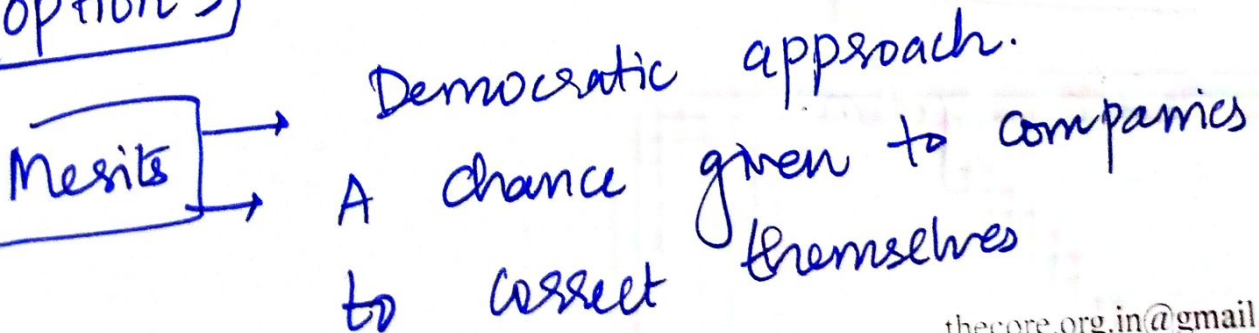 option
Democratic approach.
Merits
A chance given to companies
to correct themselves
thecore.org.in@gmail